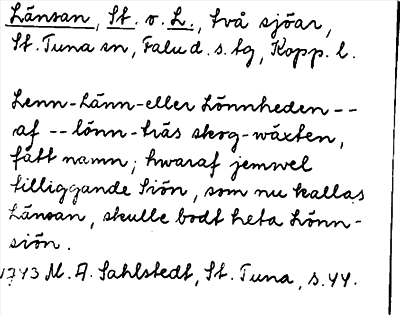 Länsan, St. o. L., två sjöar,
St. Tuna sn, Falu d. s. tg, Kopp. l.
Lenn-Länn-eller Lönnheden --
af -- lönn-träs skog-wäxten,
fått namn; hwaraf jemwel
tilliggande Siön, som nu kallas
Länsan, skulle bodt heta Lönn-
siön.
1743 M. A. Sahlstedt, St. Tuna, s. 44.